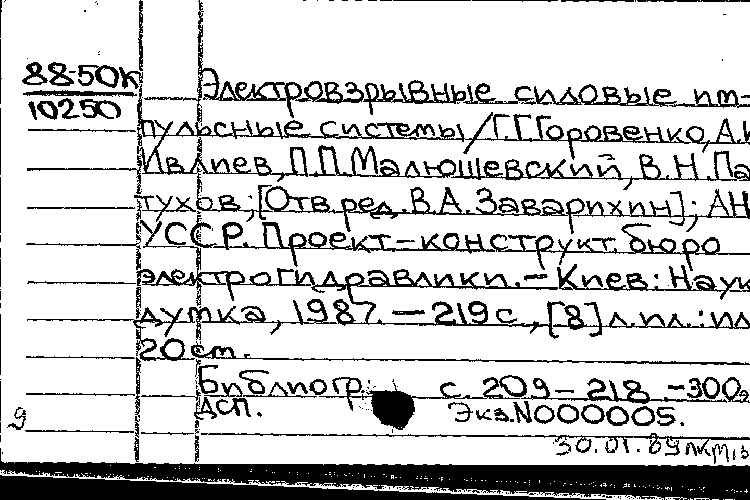 88-50К
10250
Электровзрывные силовые им-
пульсные системы/Г.Г.Горовенко, А.И
Ивлиев, П.П.Малюшевский, В.Н.Па
тухов; [Отв.ред.В.А.Заварихин]; АН
УССР. Проект-конструкт. бюро
электрогидравлики.-Киев: Наук
думка, 1987.-219с., [8]л.ил.:ил
20см.
Библиогр.: с. 209-218 -300э
ДСП. Экз.N000005.
9
30.01.89